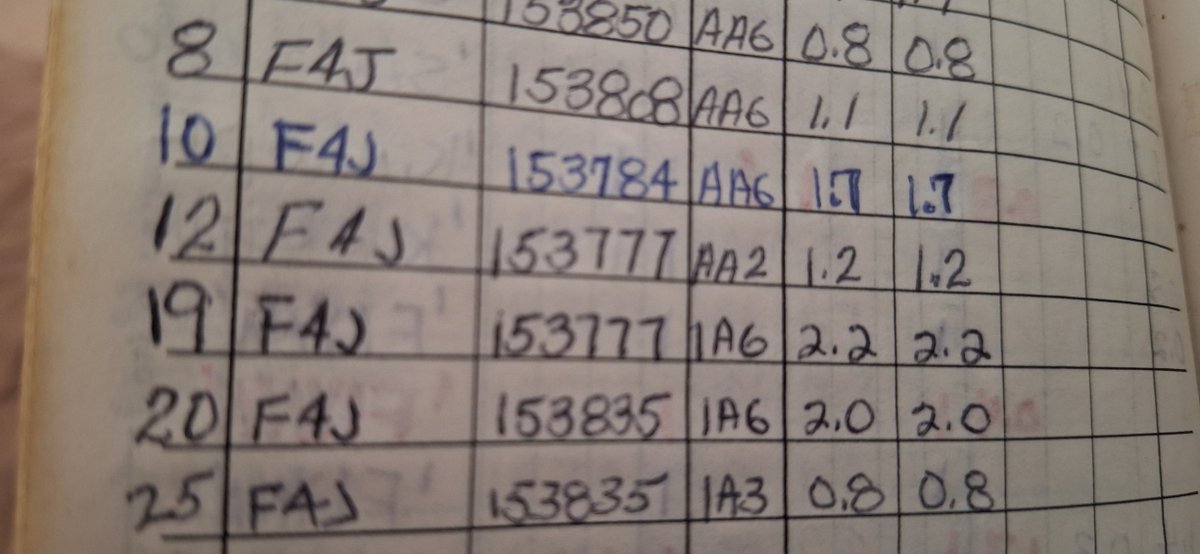 153850 AA6 0.8 0.8
8 F4J 153808 AA6 1.1 1.1
10 F4J 153784 AA6 1.7 1.7
12 F4J 153777 AA2 1.2 1.2
19 F4J 153777 1A6 2.2 2.2
20 F4J 153835 1A6 2.0 2.0
25 F4J 153835 1A3 0.8 0.8